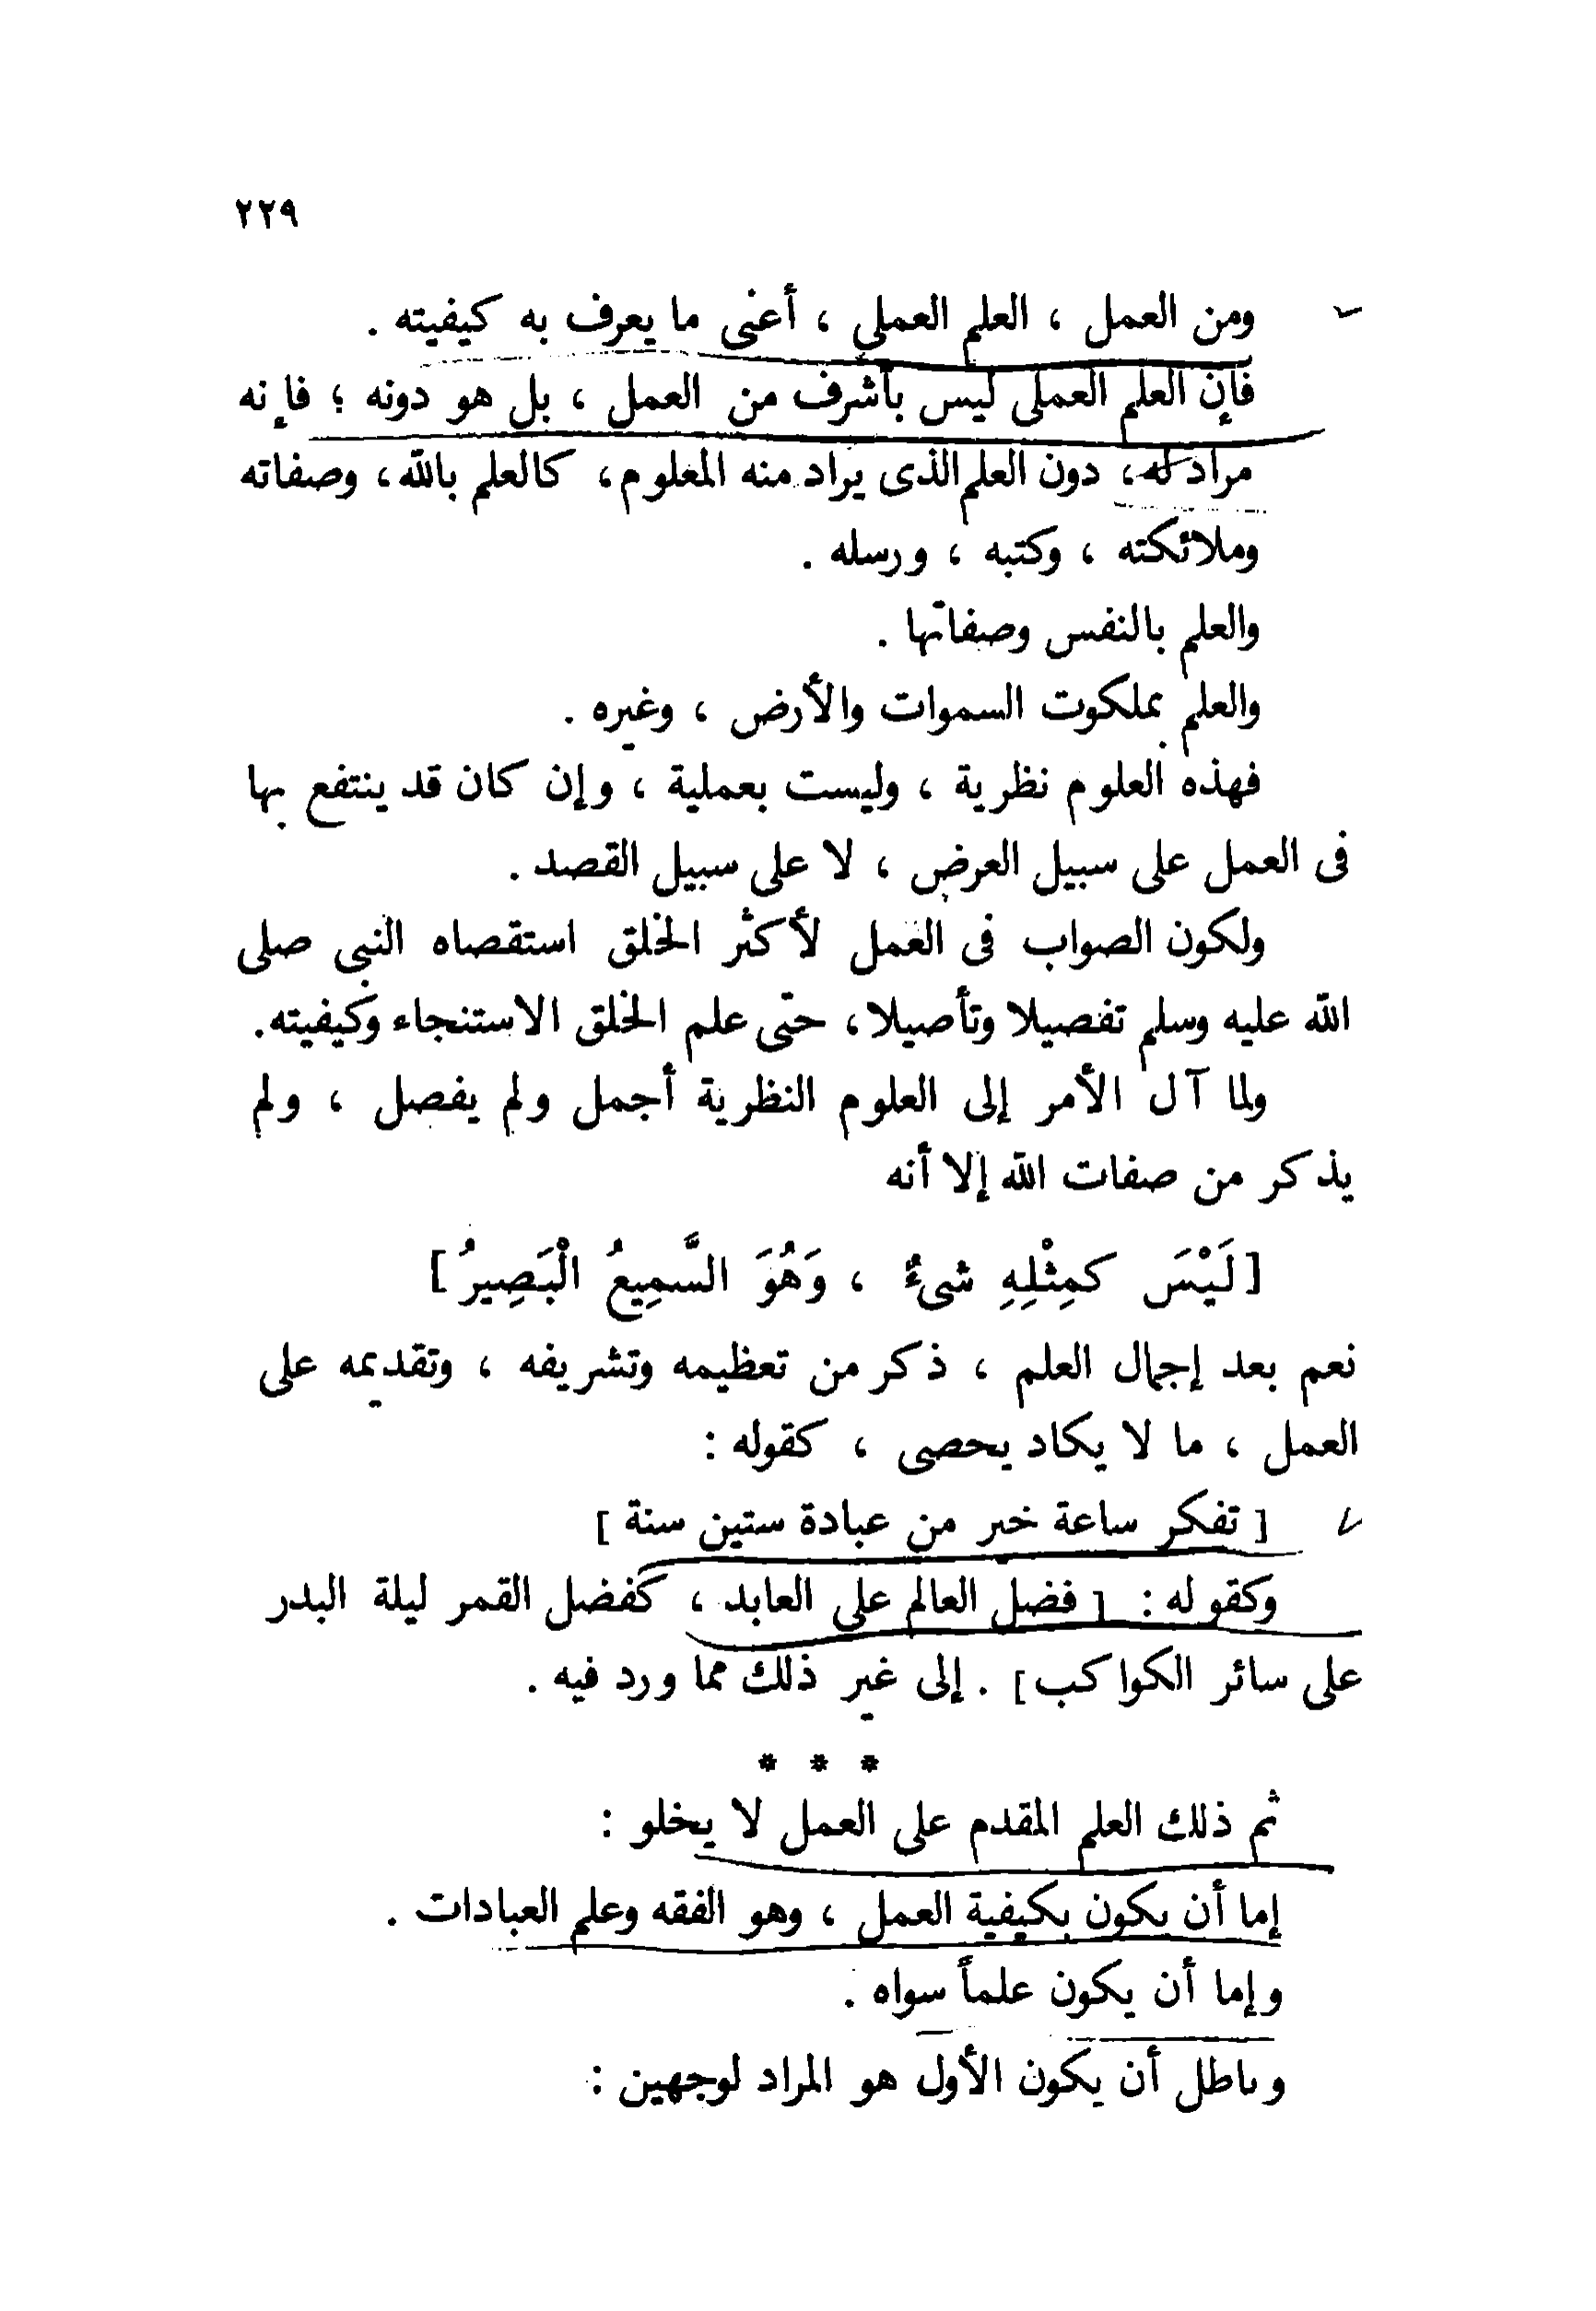 ٢٢٩
ومن العمل ، العلم العملي ، أعنى ما يعرف به كيفيته .
فإن العلم العملى ليس بأشرف من العمل ، بل هو دونه ؛ فإنه
مراد له ، دون العلم الذى يراد منه المعلوم ، كالعلم بالله ، وصفاته
وملائكته ، وكتبه ، ورسله .
والعلم بالنفس وصفاتها .
والعلم بملكوت السموات والأرض ، وغيره .
فهذه العلوم نظرية ، وليست بعملية ، وإن كان قد ينتفع بها
فى العمل على سبيل العرض ، لا على سبيل القصد .
ولكون الصواب فى العمل لأكثر الخلق استقصاه النبى صلى
الله عليه وسلم تفصيلا وتأصيلا ، حتى علم الخلق الاستنجاء وكيفيته .
ولما آل الأمر إلى العلوم النظرية أجمل ولم يفصل ، ولم
يذكر من صفات الله إلا أنه
[ لَيْسَ كمِثْلِهِ شىءٌ ، وَهُوَ السَّمِيعُ الْبَصِيرُ ]
نعم بعد إجمال العلم ، ذكر من تعظيمه وتشريفه ، وتقديمه على
العمل ، ما لا يكاد يحصى ، كقوله :
[ تفكر ساعة خير من عبادة ستين سنة ]
وكقوله : [ فضل العالم على العابد ، كفضل القمر ليلة البدر
على سائر الكواكب ] . إلى غير ذلك مما ورد فيه .
* * *
ثم ذلك العلم المقدم على العمل لا يخلو :
إما أن يكون بكيفية العمل ، وهو الفقه وعلم العبادات .
وإما أن يكون علماً سواه .
وباطل أن يكون الأول هو المراد لوجهين :